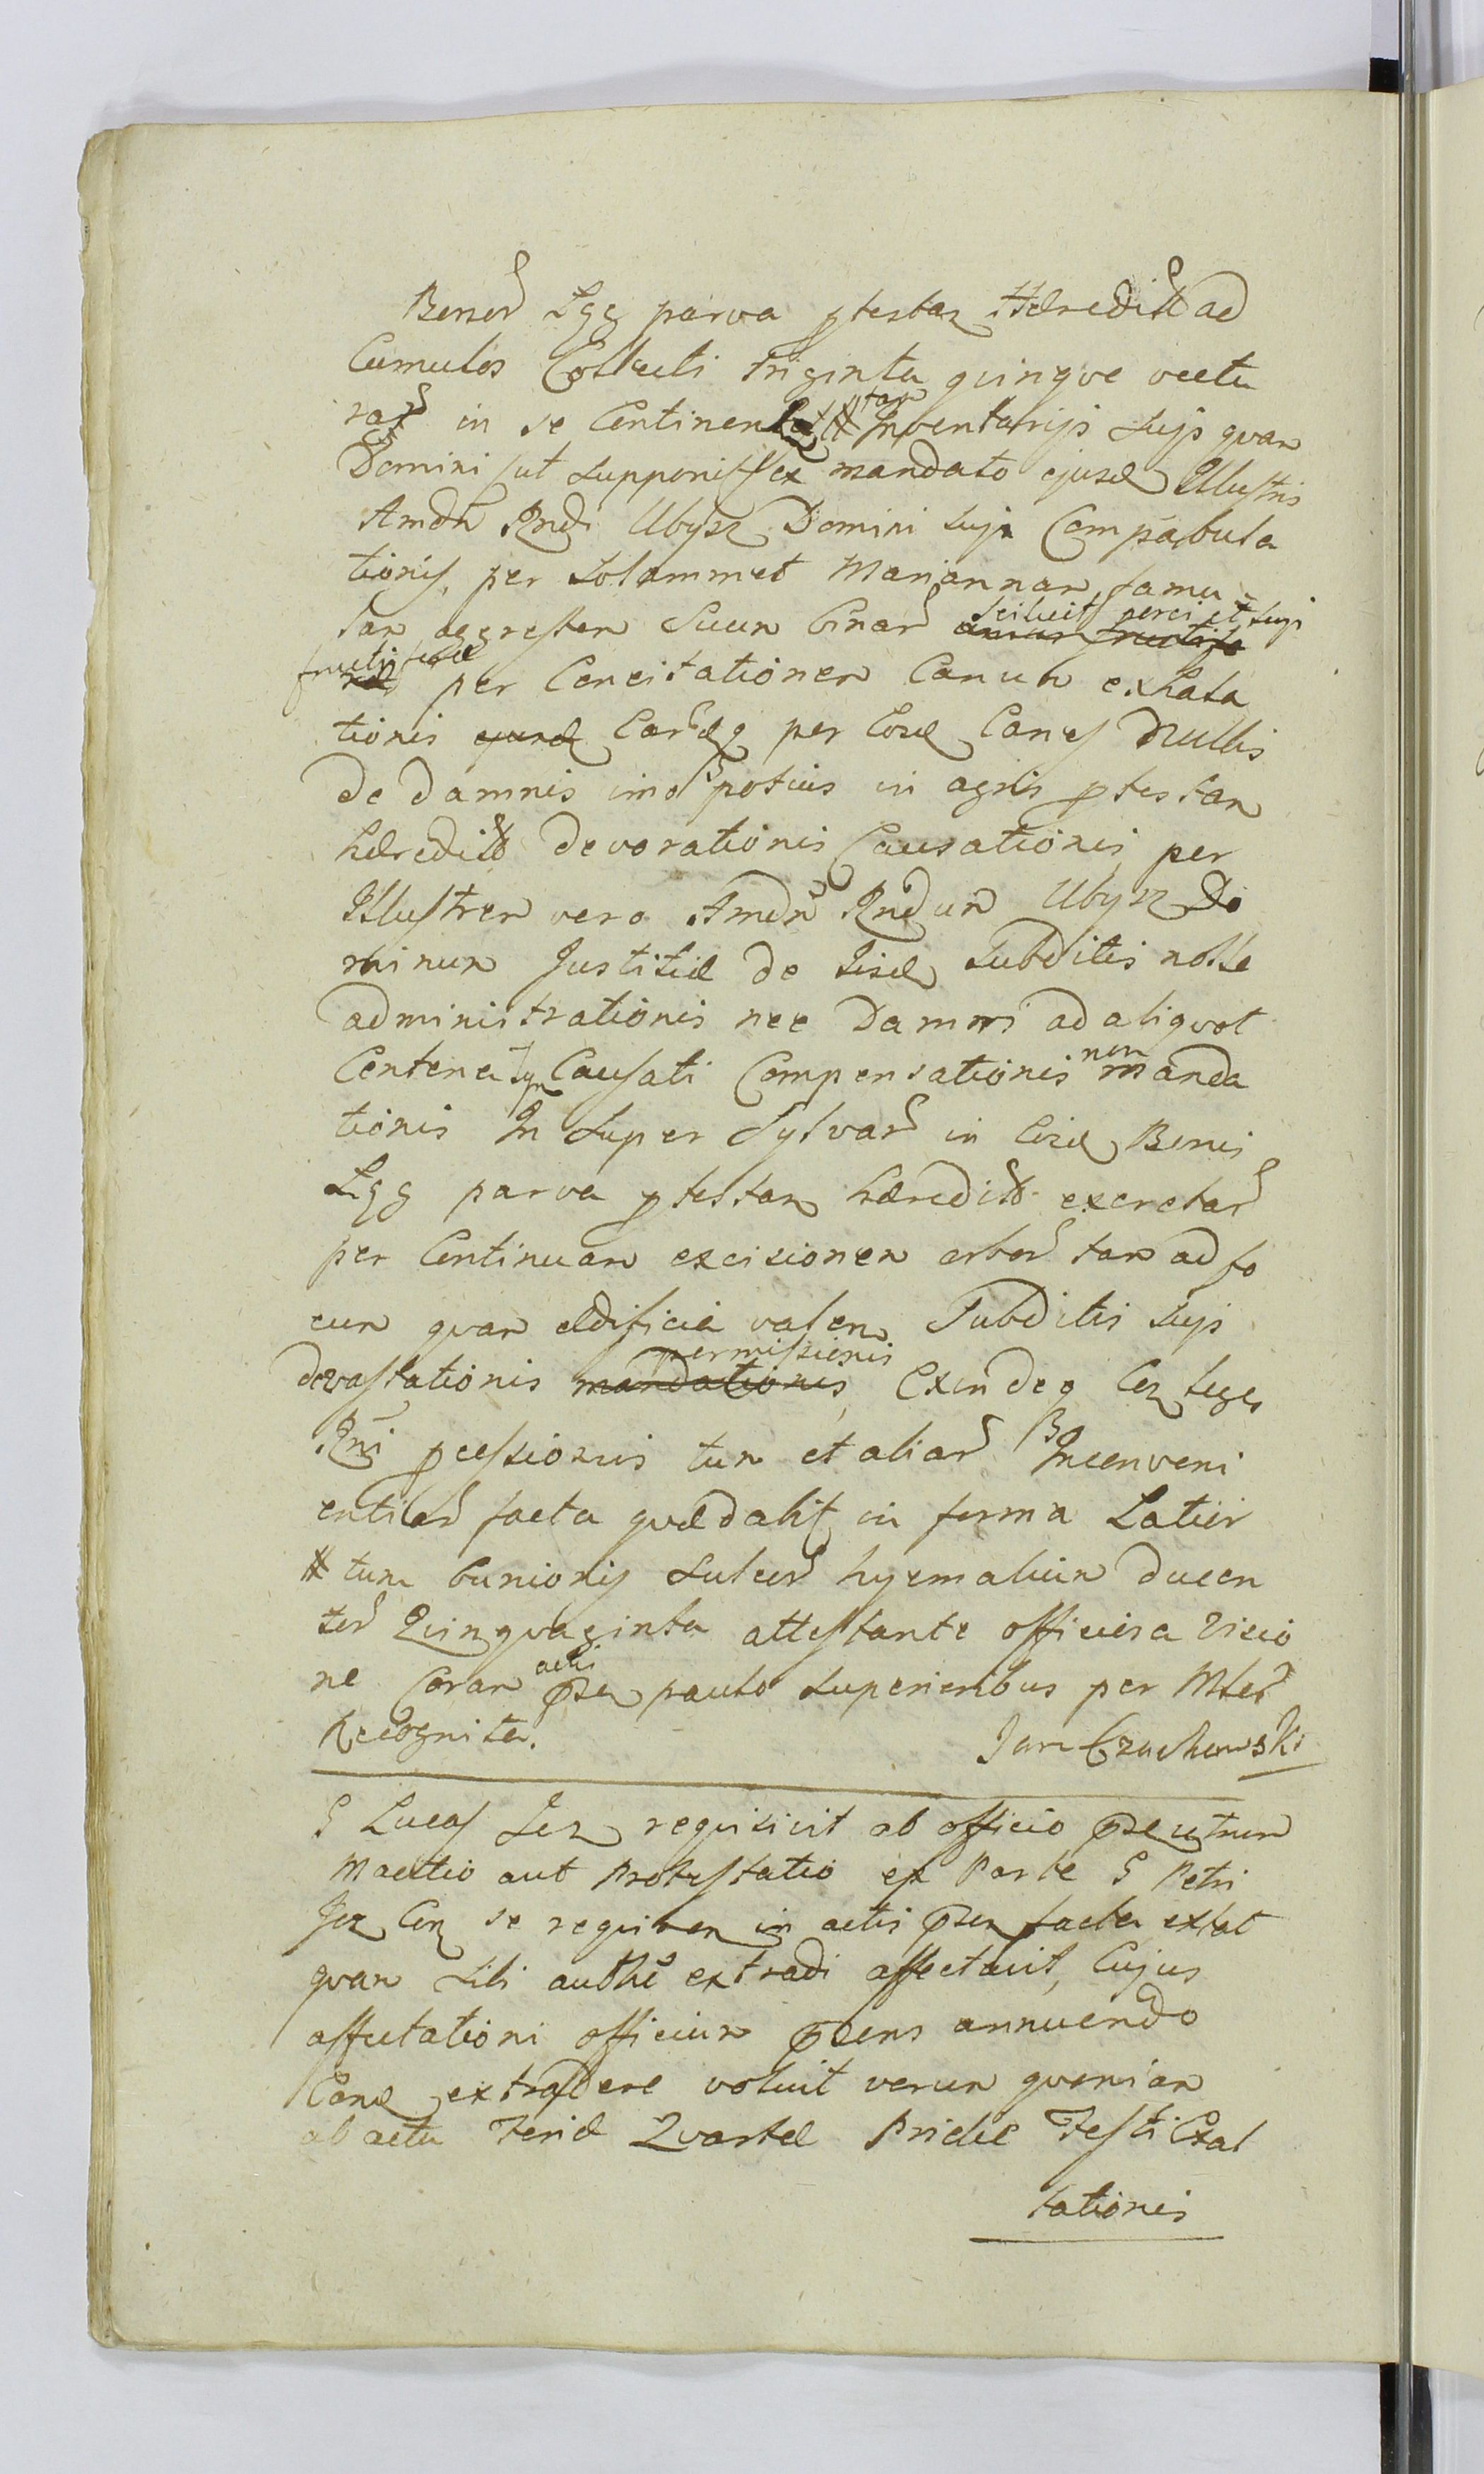 Bonor Lgg parva ptestan Hæredit ad
Cumulos Collecti triginta quinque vectu
rar in se Continen tam Inventarijs suis quam
Domini sut supponiss ex mandato ejusd Illustris
Amdn Rndi Ubysz Domini sui Compabula
tionis, per solammet Mariannam famu
lam aggrestem suum Scilicet porci et sui
fructiferæ per Concitationem Canum exhala
tionis per Eosd Canes Nullis
de damnis imo potius in agris ptestan
hæredit devorationis Causationis per
Illustrem vero Amdn Rndum Ubysz Do
minum Justitiæ de Iisd Subditis nolle
administrationis nec Damni ad aliquot
Centena Causati Compensationis non manda
tionis In super Sylvar in Eisd Bonis
Lgg parva ptestan hæredit excretar
per Continuam excisionem arbor tam ad fo
cum quam ædificia valen Subditis suis
devastationis permissionis mandationis, Exindeq Con leges
Rni pcessionis tum et aliar Inconveni
entiar facta quædalit in forma Latior
tum cunionis sulcor hyemalium ducen
tor Quinquaginta attestante officiosa visio
ne Coram actis psen paulo superioribus per Mter
Recognita.
Jan Czachowski
G Lucas Jez requisivit ab officio psen utrum
Manctio aut Protestatio ex Parte G Petri
Jez Con se requiren in actis psen facta extat
quam sibi authe extradi affectavit, Cujus
affectationi officium psens annuendo
Eand extradere voluit verum quoniam
ab actu Feriæ Quartæ Pridie Festi Exal
tationis